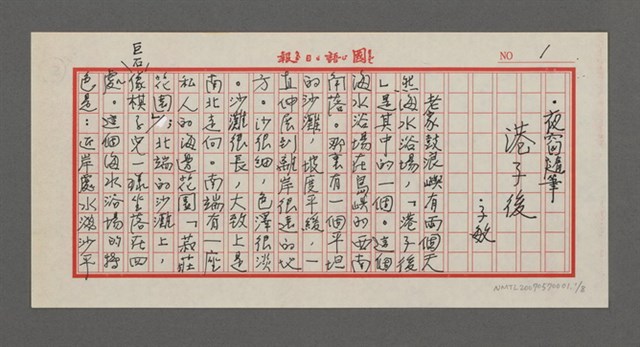 國語日報
NO 1
·夜窗隨筆
港子後
子敏
老家鼓浪嶼有兩個天
然海水浴場，「港子後
」是其中的一個。這個
海水浴場在島嶼的西南
角落。那裏有一個平坦
的沙灘，坡度平緩，一
直伸展到離岸很遠的地
方。沙很細，色澤很淡
。沙灘很長，大致上是
南北走向。南端有一座
私人的海邊花園「菽莊
花園」；北端的沙灘上，
巨石像棋子兒一樣坐落在四
處。這個海水浴場的特
色是：近岸處水淺沙平
NMTL20090590001, 1/8